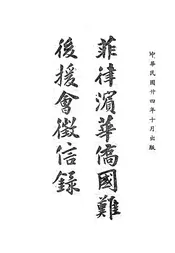 中華民國廿四年十月出版
菲律濱華僑國難
後援會徵信錄